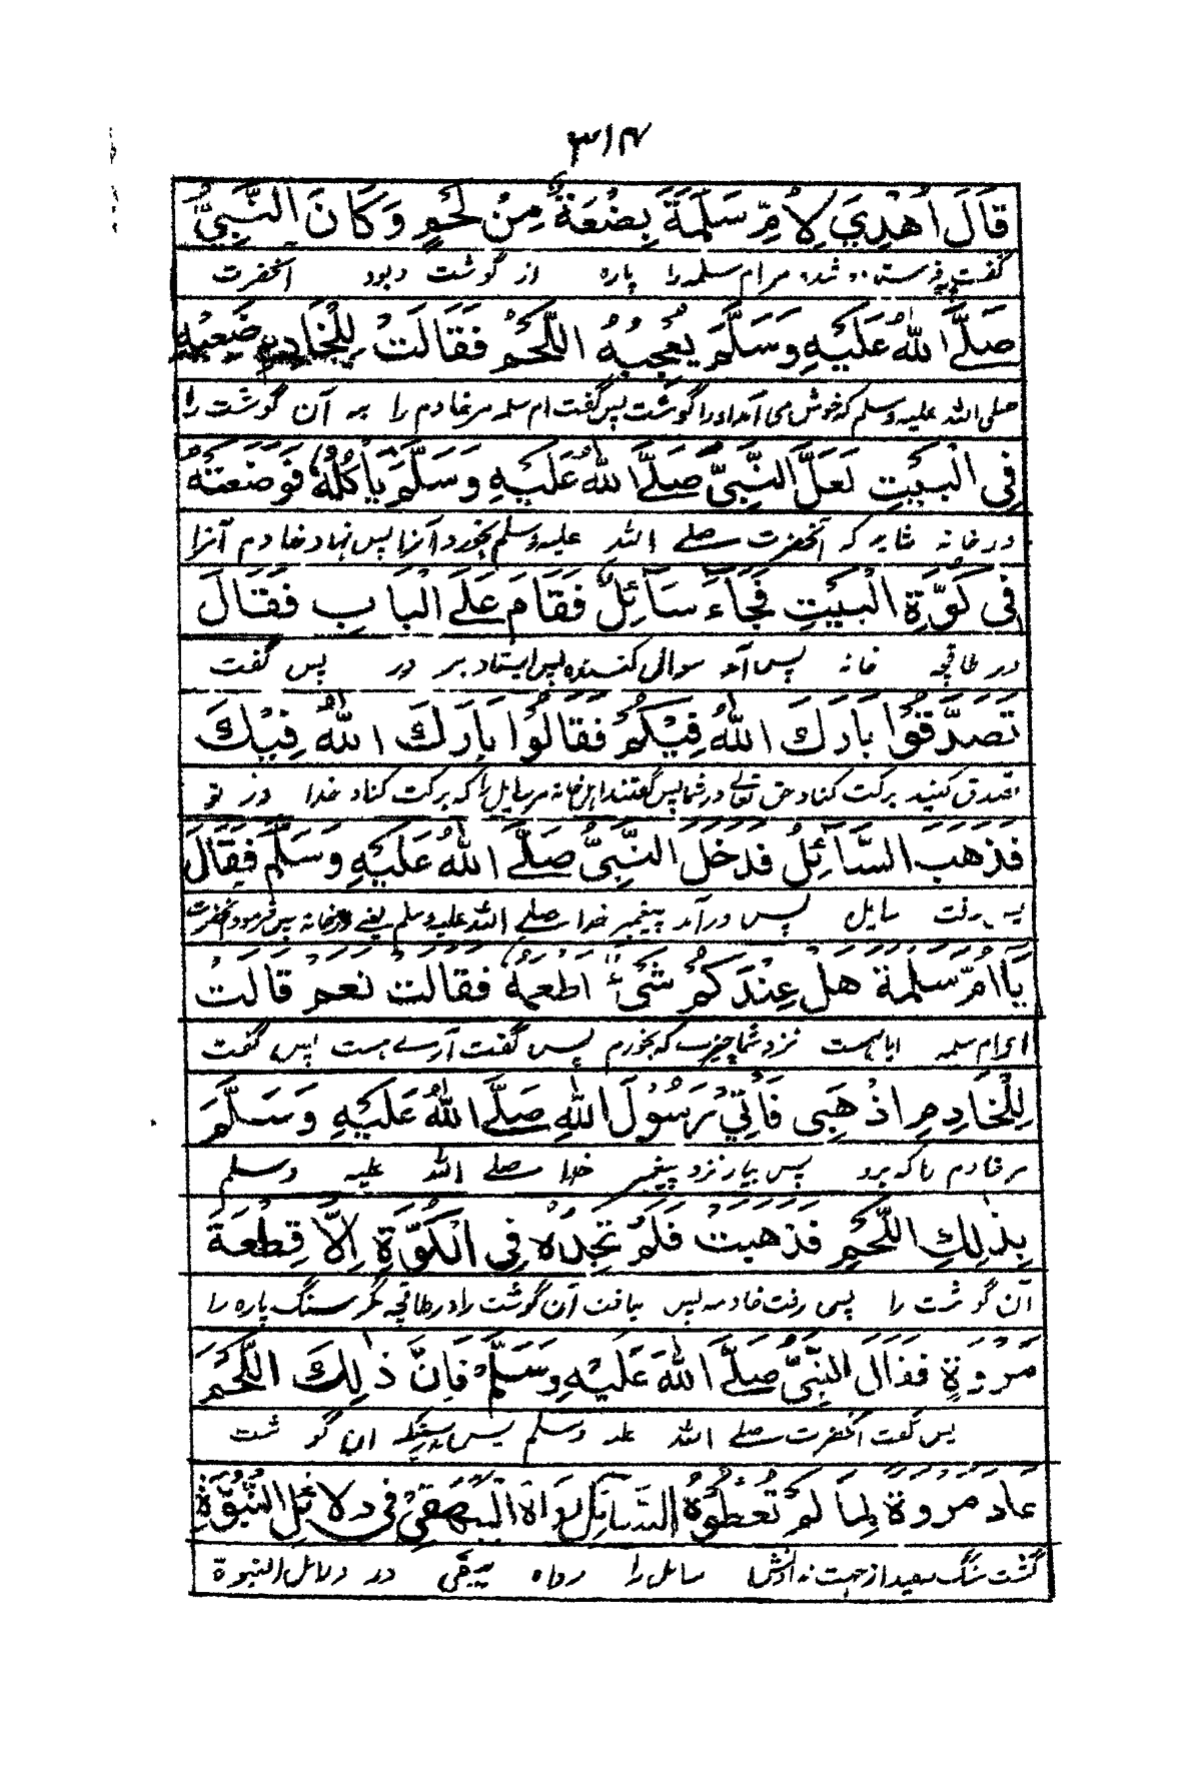 ۳۱۴
قَالَ اُهْدِيَ لِاُمِّ سَلَمَةَ بِضْعَةٌ مِنْ لَحْمٍ وَكَانَ النَّبِيُّ
گفت فرستاده شد مرام سلمه را پاره از گوشت و بود آنحضرت
صَلَّى اللهُ عَلَيْهِ وَسَلَّمَ يُعْجِبُهُ اللَّحْمُ فَقَالَتْ لِلْخَادِمِ ضَعِيْهِ
صلی الله علیه وسلم که خوش می آمد او را گوشت پس گفت ام سلمه مر خادم را بنه آن گوشت را
فِي الْبَيْتِ لَعَلَّ النَّبِيَّ صَلَّى اللهُ عَلَيْهِ وَسَلَّمَ يَأْكُلُهُ فَوَضَعَتْهُ
در خانه شاید که آنحضرت صلے الله علیه وسلم بخورد آنرا پس نهاد خادم آنرا
فِي كَوَّةِ الْبَيْتِ فَجَآءَ سَآئِلٌ فَقَامَ عَلَى الْبَابِ فَقَالَ
در طاقچه خانه پس آمد سوال کننده پس ایستاد بر در پس گفت
تَصَدَّقُوْا بَارَكَ اللهُ فِيْكُمْ فَقَالُوْا بَارَكَ اللهُ فِيْكَ
تصدق کنید برکت کناد حق تعالے در شما پس گفتند اهل خانه مر سایل را که برکت کناد خدا در تو
فَذَهَبَ السَّآئِلُ فَدَخَلَ النَّبِيُّ صَلَّى اللهُ عَلَيْهِ وَسَلَّمَ فَقَالَ
پس رفت سایل پس در آمد پیغمبر خدا صلے الله علیه وسلم یعنے در خانه پس فرمود آنحضرت
يَا اُمَّ سَلَمَةَ هَلْ عِنْدَكُمْ شَيْءٌ اَطْعَمُهُ فَقَالَتْ نَعَمْ قَالَتْ
ای ام سلمه ایا هست نزد شما چیزے که بخورم پس گفت آرے هست پس گفت
لِلْخَادِمِ اذْهَبِي فَاْتِي رَسُوْلَ اللهِ صَلَّى اللهُ عَلَيْهِ وَسَلَّمَ
مر خادم را که برو پس بیار نزد پیغمبر خدا صلے الله علیه وسلم
بِذٰلِكَ اللَّحْمِ فَذَهَبَتْ فَلَمْ تَجِدْهُ فِي الْكَوَّةِ اِلَّا قِطْعَةَ
آن گوشت را پس رفت خادمه پس نیافت آن گوشت را در طاقچه مگر سنگ پاره را
مَرْوَةٍ فَقَالَ النَّبِيُّ صَلَّى اللهُ عَلَيْهِ وَسَلَّمَ فَاِنَّ ذٰلِكَ اللَّحْمَ
پس گفت آنحضرت صلے الله علیه وسلم پس بدرستیکه این گوشت
عَادَ مَرْوَةً لِمَا لَمْ تُعْطُوْهُ السَّآئِلَ رَوَاهُ الْبَيْهَقِيُّ فِي دَلَائِلِ النُّبُوَّةِ
گشت سنگ سفید از جهت ندادنش سائل را رواه بیهقی در دلائل النبوة